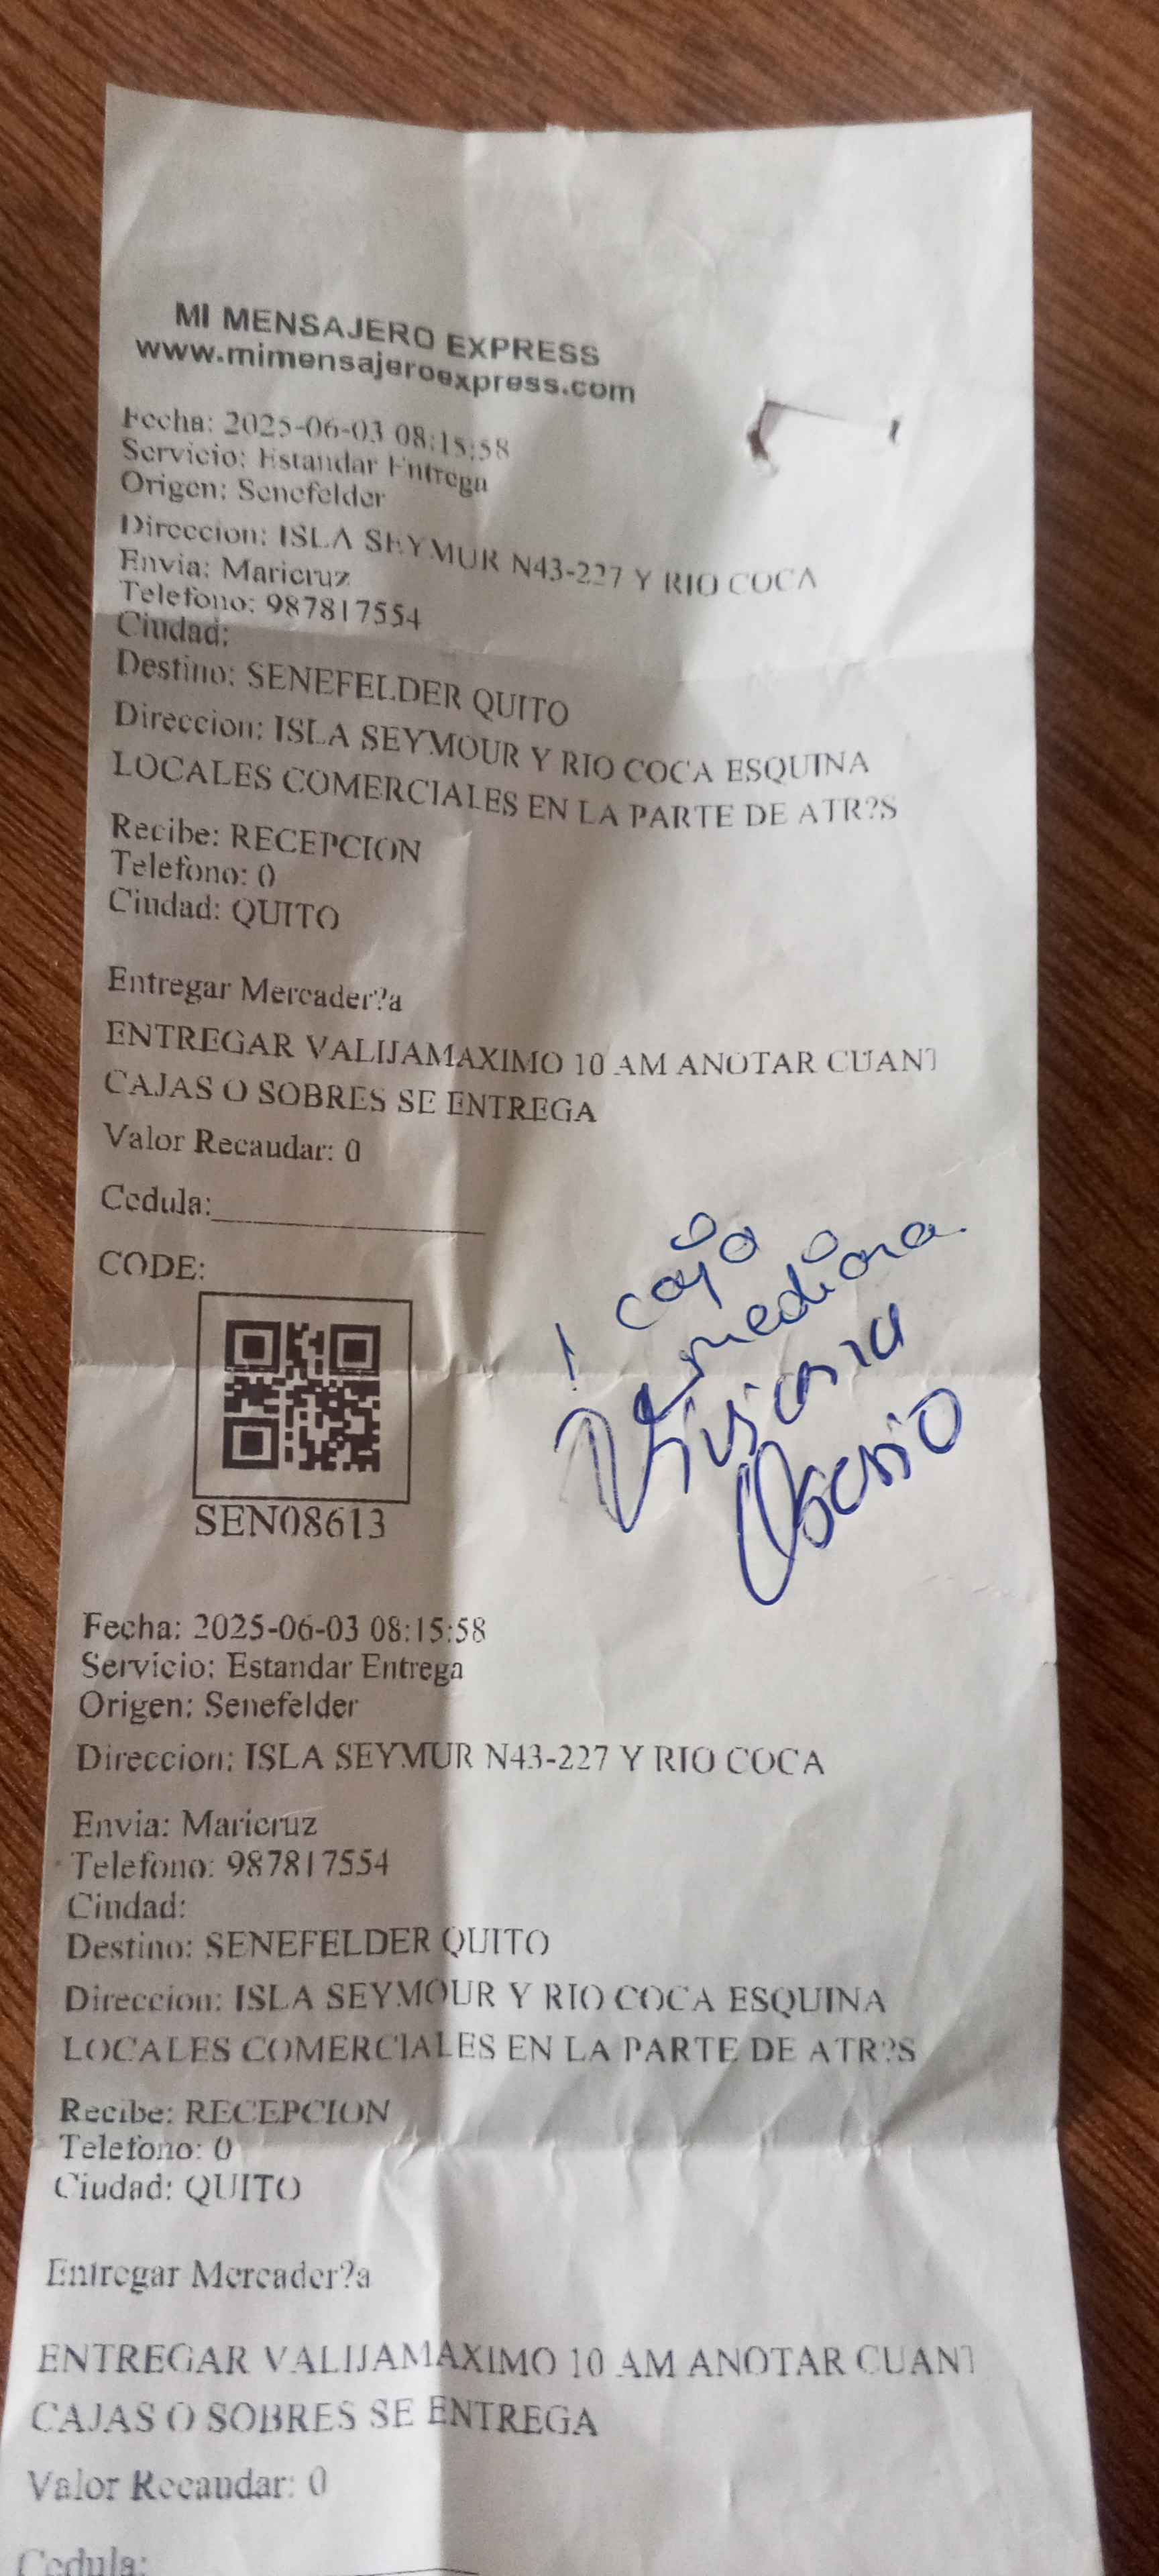 MI MENSAJERO EXPRESS
www.mimensajeroexpress.com
Fecha: 2025-06-03 08:15:58
Servicio: Estandar Entrega
Origen: Senefelder
Direccion: ISLA SEYMUR N43-227 Y RIO COCA
Envia: Maricruz
Telefono: 987817554
Ciudad:
Destino: SENEFELDER QUITO
Direccion: ISLA SEYMOUR Y RIO COCA ESQUINA
LOCALES COMERCIALES EN LA PARTE DE ATR?S
Recibe: RECEPCION
Telefono: 0
Ciudad: QUITO
Entregar Mercader?a
ENTREGAR VALIJAMAXIMO 10 AM ANOTAR CUANT
CAJAS O SOBRES SE ENTREGA
Valor Recaudar: 0
Cedula:
CODE:
1 caja
mediana.
Viviana
Osorio
SEN08613
Fecha: 2025-06-03 08:15:58
Servicio: Estandar Entrega
Origen: Senefelder
Direccion: ISLA SEYMUR N43-227 Y RIO COCA
Envia: Maricruz
Telefono: 987817554
Ciudad:
Destino: SENEFELDER QUITO
Direccion: ISLA SEYMOUR Y RIO COCA ESQUINA
LOCALES COMERCIALES EN LA PARTE DE ATR?S
Recibe: RECEPCION
Telefono: 0
Ciudad: QUITO
Entregar Mercader?a
ENTREGAR VALIJAMAXIMO 10 AM ANOTAR CUANT
CAJAS O SOBRES SE ENTREGA
Valor Recaudar: 0
Cedula: